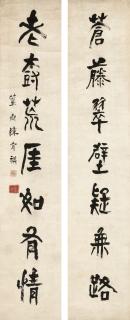 蒼藤翠壁疑無路
老樹荒厓如有情